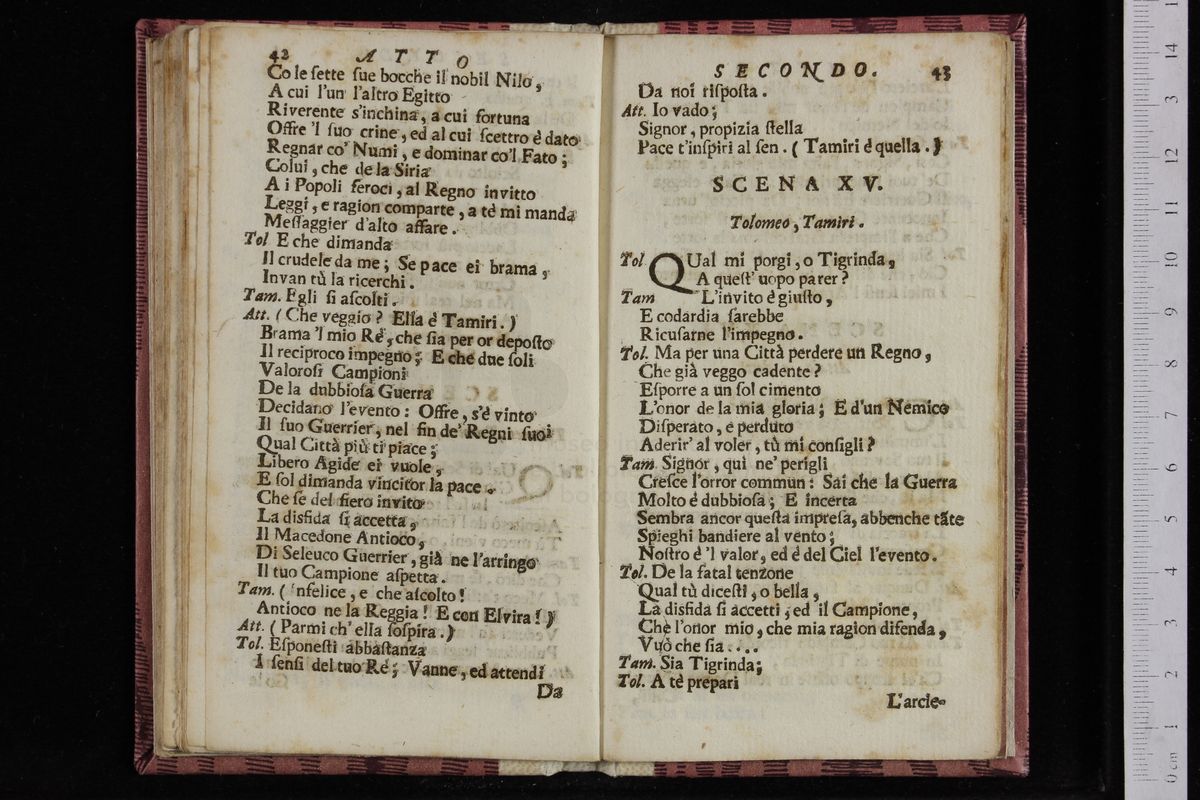 42 ATTO
Co le ſette ſue bocche il nobil Nilo,
A cui l'un l'altro Egitto
Riverente s'inchina, a cui fortuna
Offre 'l ſuo crine, ed al cui ſcettro è dato
Regnar co' Numi, e dominar co'l Fato;
Colui, che de la Siria
A i Popoli feroci, al Regno invitto
Leggi, e ragion comparte, a tè mi manda
Meſſaggier d'alto affare.
Tol E che dimanda
Il crudele da me; Se pace ei brama,
Invan tù la ricerchi.
Tam. Egli ſi aſcolti.
Att. (Che veggio? Ella è Tamiri.)
Brama 'l mio Rè, che ſia per or depoſto
Il reciproco impegno; E che due ſoli
Valoroſi Campioni
De la dubbioſa Guerra
Decidano l'evento: Offre, s'è vinto
Il ſuo Guerrier, nel fin de' Regni ſuoi
Qual Città più ti piace;
Libero Agide ei vuole,
E ſol dimanda vincitor la pace.
Che ſe del fiero invito
La disfida ſi accetta,
Il Macedone Antioco,
Di Seleuco Guerrier, già ne l'arringo
Il tuo Campione aſpetta.
Tam. ( 'nfelice, e che aſcolto!
Antioco ne la Reggia! E con Elvira!)
Att. (Parmi ch' ella ſoſpira.)
Tol. Eſponeſti abbaſtanza
I ſenſi del tuo Rè; Vanne, ed attendi
Da
SECONDO. 43
Da noi riſpoſta.
Att. Io vado;
Signor, propizia ſtella
Pace t'inſpiri al ſen. (Tamiri è quella.)
SCENA XV.
Tolomeo, Tamiri.
Tol QUal mi porgi, o Tigrinda,
A queſt' uopo parer?
Tam L'invito è giuſto,
E codardia ſarebbe
Ricuſarne l'impegno.
Tol. Ma per una Città perdere un Regno,
Che già veggo cadente?
Eſporre a un ſol cimento
L'onor de la mia gloria; E d'un Nemico
Diſperato, e perduto
Aderir' al voler, tù mi conſigli?
Tam Signor, quì ne' perigli
Creſce l'orror commun: Sai che la Guerra
Molto è dubbioſa; E incerta
Sembra ancor queſta impreſa, abbenche tãte
Spieghi bandiere al vento;
Noſtro è 'l valor, ed è del Ciel l'evento.
Tol. De la fatal tenzone
Qual tù diceſti, o bella,
La disfida ſi accetti, ed il Campione,
Chè l'onor mio, che mia ragion difenda,
Vuò che ſia....
Tam. Sia Tigrinda;
Tol. A tè prepari
L'arcie-